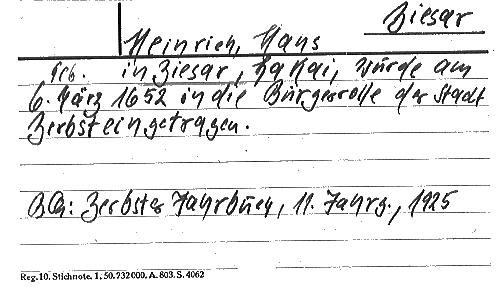 Ziesar
Heinrich, Hans
Geb. in Ziesar, Lakai, wurde am
6. März 1652 in die Bürgerrolle der Stadt
Zerbst eingetragen.
Zerbster Jahrbuch, 11. Jahrg., 1925
Reg. 10. Stichnote. 1, 50. 732000, A. 803. S. 4062